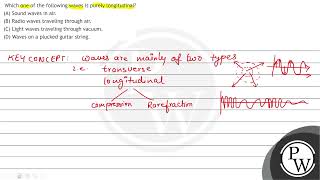 Which one of the following waves is purely longitudinal?
(A) Sound waves in air.
(B) Radio waves traveling through air.
(C) Light waves traveling through vacuum.
(D) Waves on a plucked guitar string.
KEY CONCEPT: Waves are mainly of two types
i.e. transverse
longitudinal
compression Rarefraction
PW